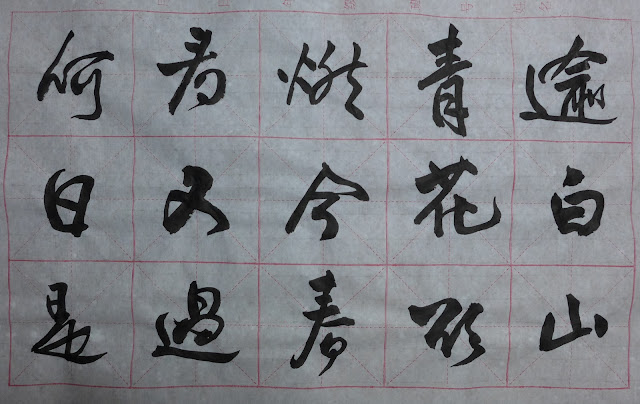 逾白山
青花欲
燃今春
看又過
何日是